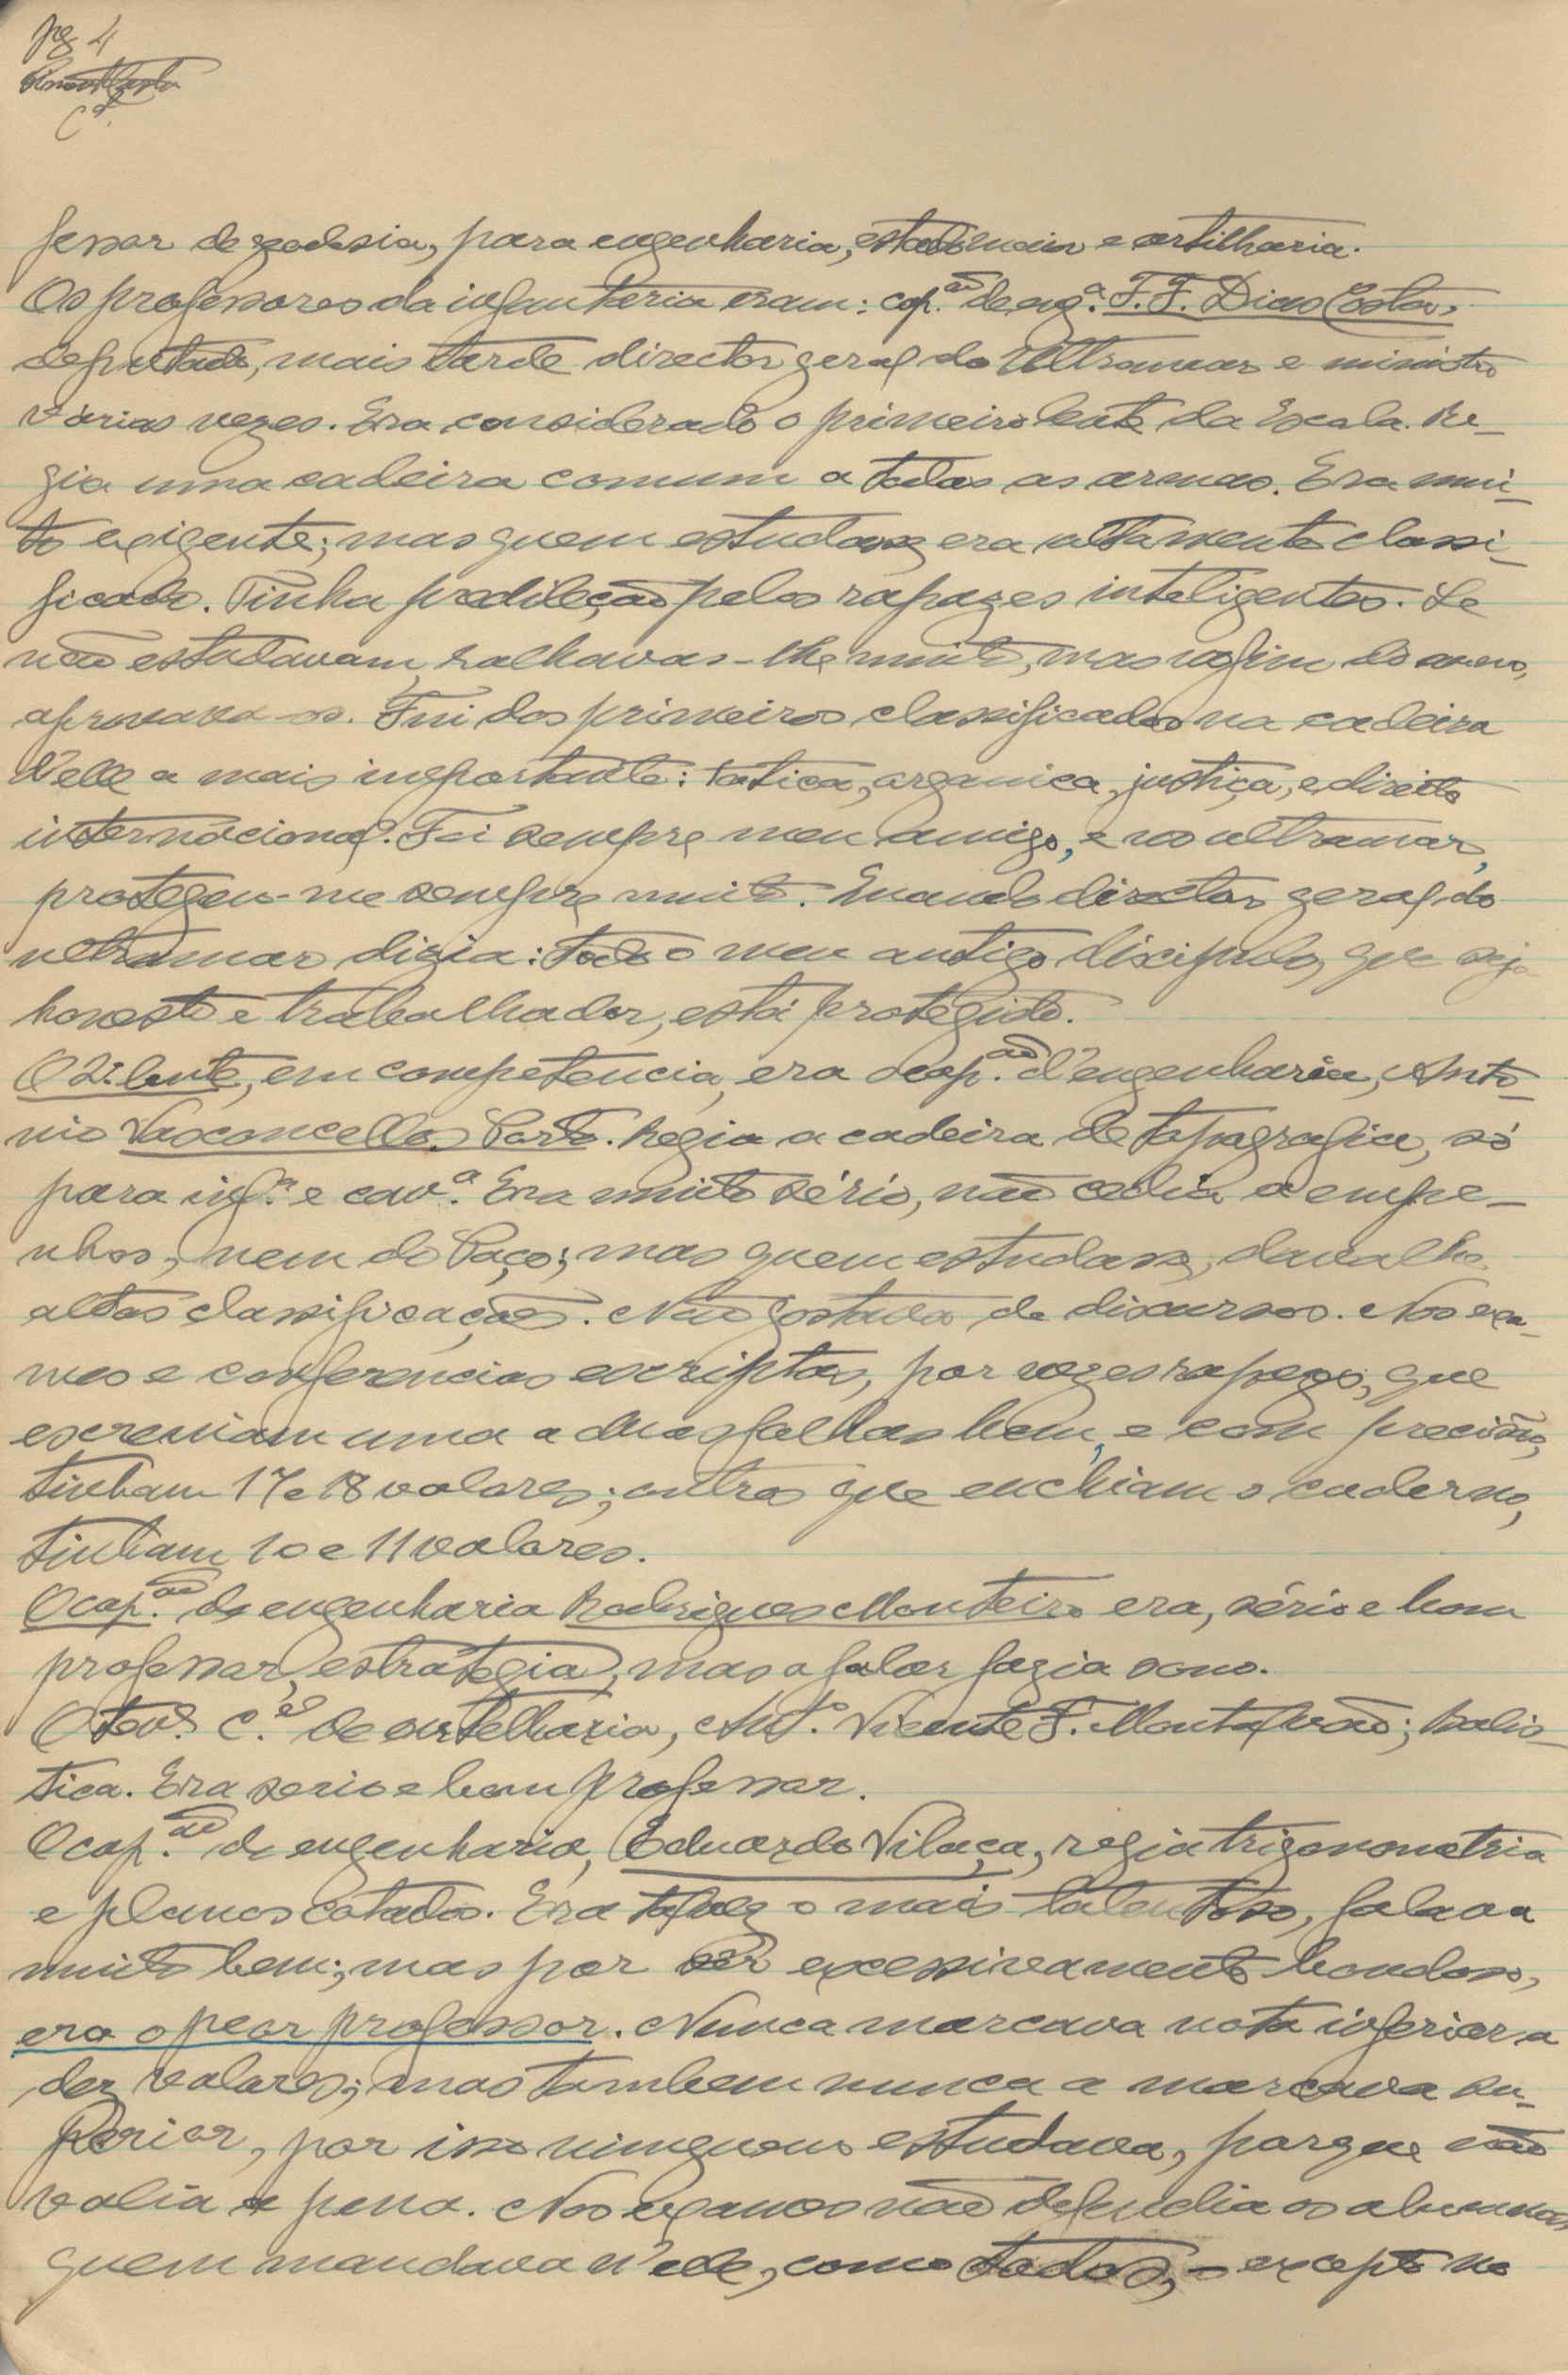 pg 4
fessor de geodesia, para engenharia, estado maior e artilharia.
Os professores da infanteria eram: cap.ão de eng.ª: F. F. Dias Costa,
deputado, mais tarde director geral do Ultramar e ministro
várias vezes. Era considerado o primeiro lente da Escola. Re-
gia uma cadeira comum a todas as armas. Era mui-
to exigente; mas quem estudasse era altamente classi-
ficado. Tinha predileção pelos rapazes inteligentes. Se
não estudavam, ralhava-lhe muito, mas no fim do anno,
aprovava-os. Fui dos primeiros classificados na cadeira
d'elle a mais importante: tatica, organica, justiça, e direito
internacional. Foi sempre meu amigo, e no ultramar,
protegeu-me sempre muito. Quando director geral do
ultramar dizia: todo o meu antigo discipulo, que seja
honesto e trabalhador, está protegido.
O 2º lente, em competencia, era o cap.ão d'engenharia, Anto-
nio Vasconcellos Porto. Regia a cadeira de topografia, só
para inf.ª e cav.ª Era muito sério, não cedia a empe-
nhos, nem do Paço; mas quem estudasse, dava lhe
altas classificações. Não gostava de discursos. Nos exa-
mes e conferencias escriptas, por vezes rapazes, que
escreviam uma a duas folhas bem, e com precisão,
tinham 17 e 18 valores; outros que enchiam o caderno,
tinham 10 e 11 valores.
O cap.ão de engenharia Rodrigues Monteiro era, sério e bom
professor, estrategia, mas a falar fazia sono.
O ten.e C.el de artelharia, Ant.º Vicente F. Montalvão; balis-
tica. Era serio e bom professor.
O cap.ão de engenharia, Eduardo Vilaça, regia trigonometria
e planos cotados. Era talvez o mais talentoso, falava
muito bem; mas por ser excessivamente bondoso,
era o peor professor. Nunca marcava nota inferior a
dez valores; mas tambem nunca a marcava su-
perior, por isso ninguem estudava, porque não
valia a pena. Nos exames não defendia os alumnos
quem mandava n'ele, como todos, - excepto no